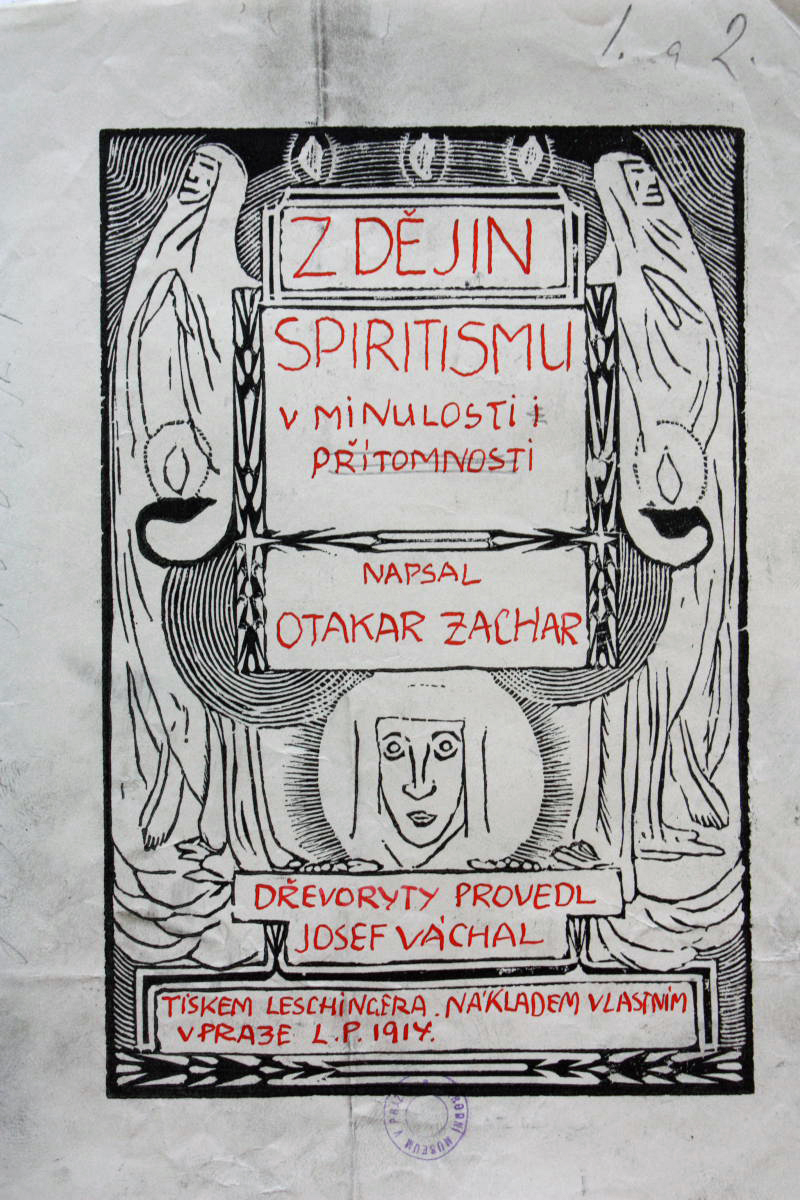 1. a 2.
Z DĚJIN
SPIRITISMU
V MINULOSTI i
PŘÍTOMNOSTI
NAPSAL
OTAKAR ZACHAR
DŘEVORYTY PROVEDL
JOSEF VÁCHAL
TISKEM LESCHINGERA. NÁKLADEM VLASTNÍM
V PRAZE L.P. 1914.
MUSEUM V